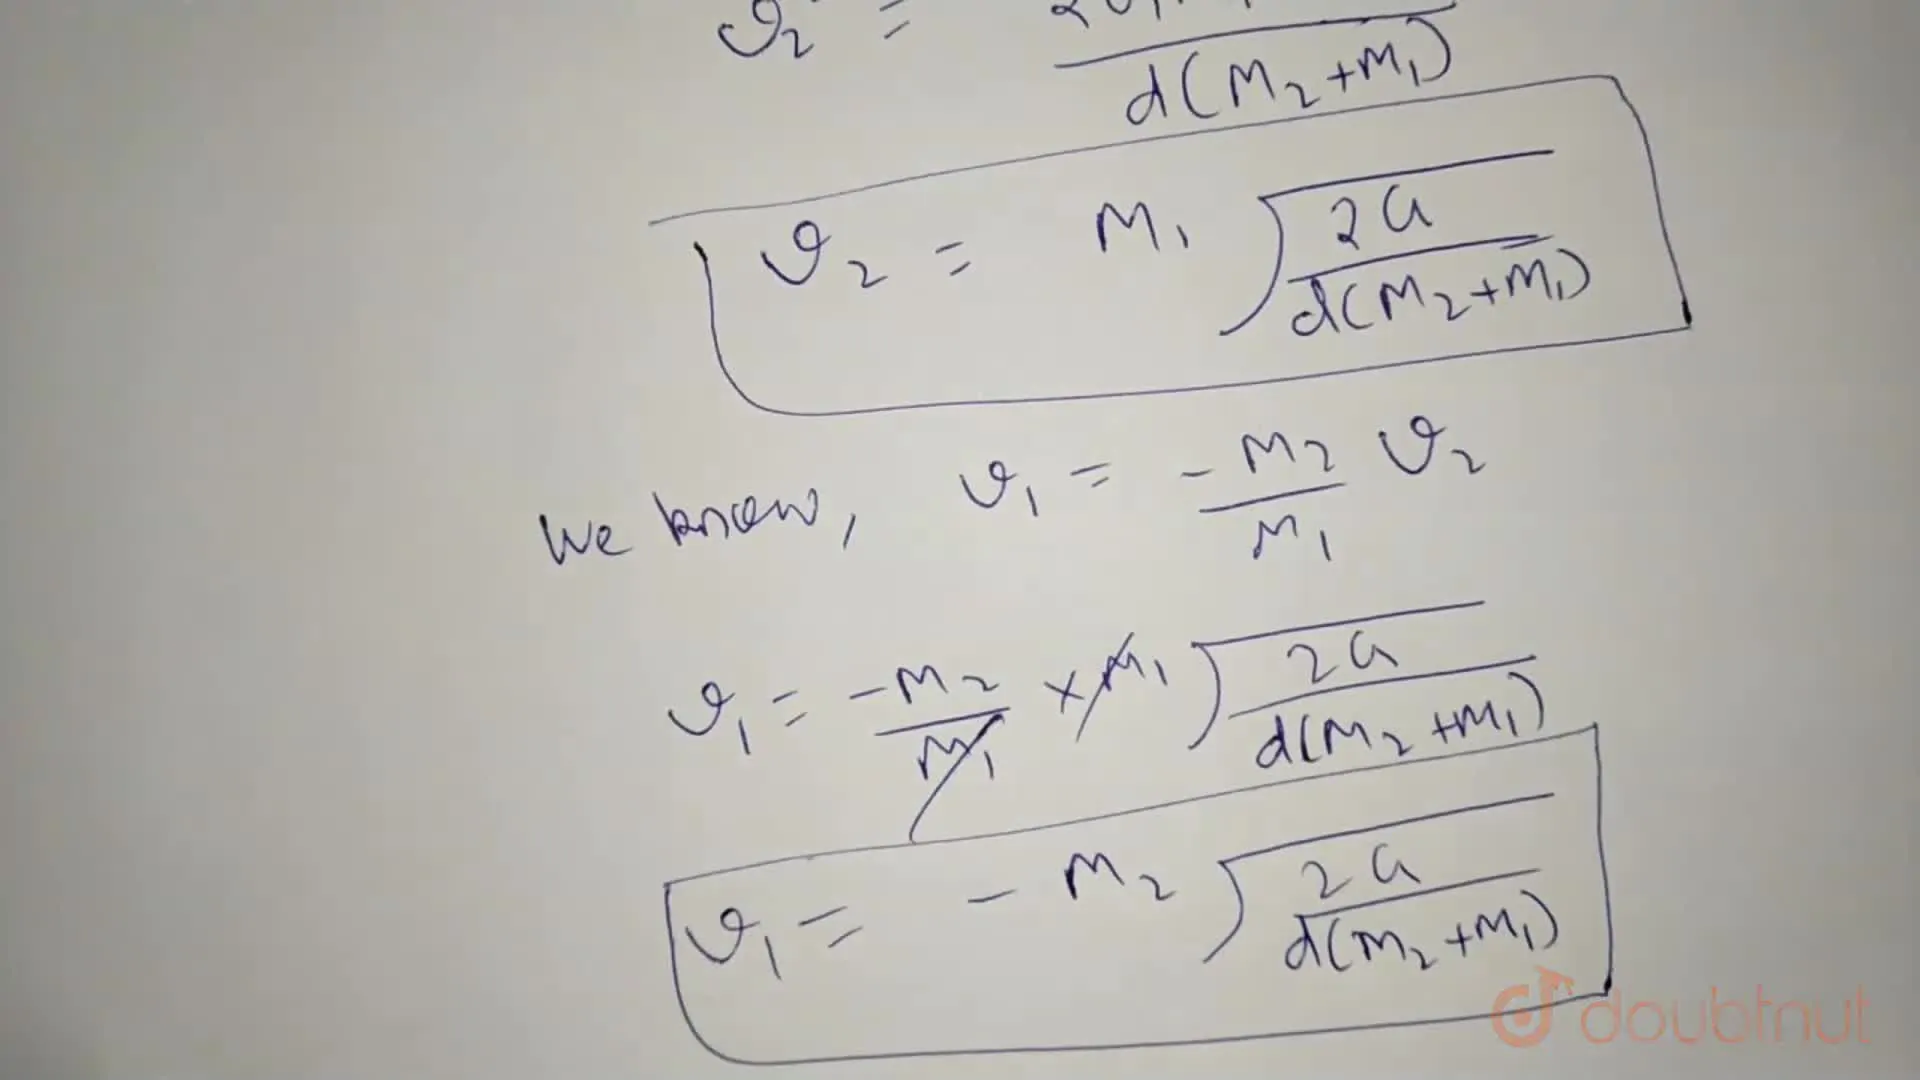 v₂² =
d(M₂+M₁)
v₂ = M₁ √(2G / d(M₂+M₁))
We know, v₁ = -M₂/M₁ v₂
v₁ = -M₂/M₁ × M₁ √(2G / d(M₂+M₁))
v₁ = - M₂ √(2G / d(M₂+M₁))
doubtnut